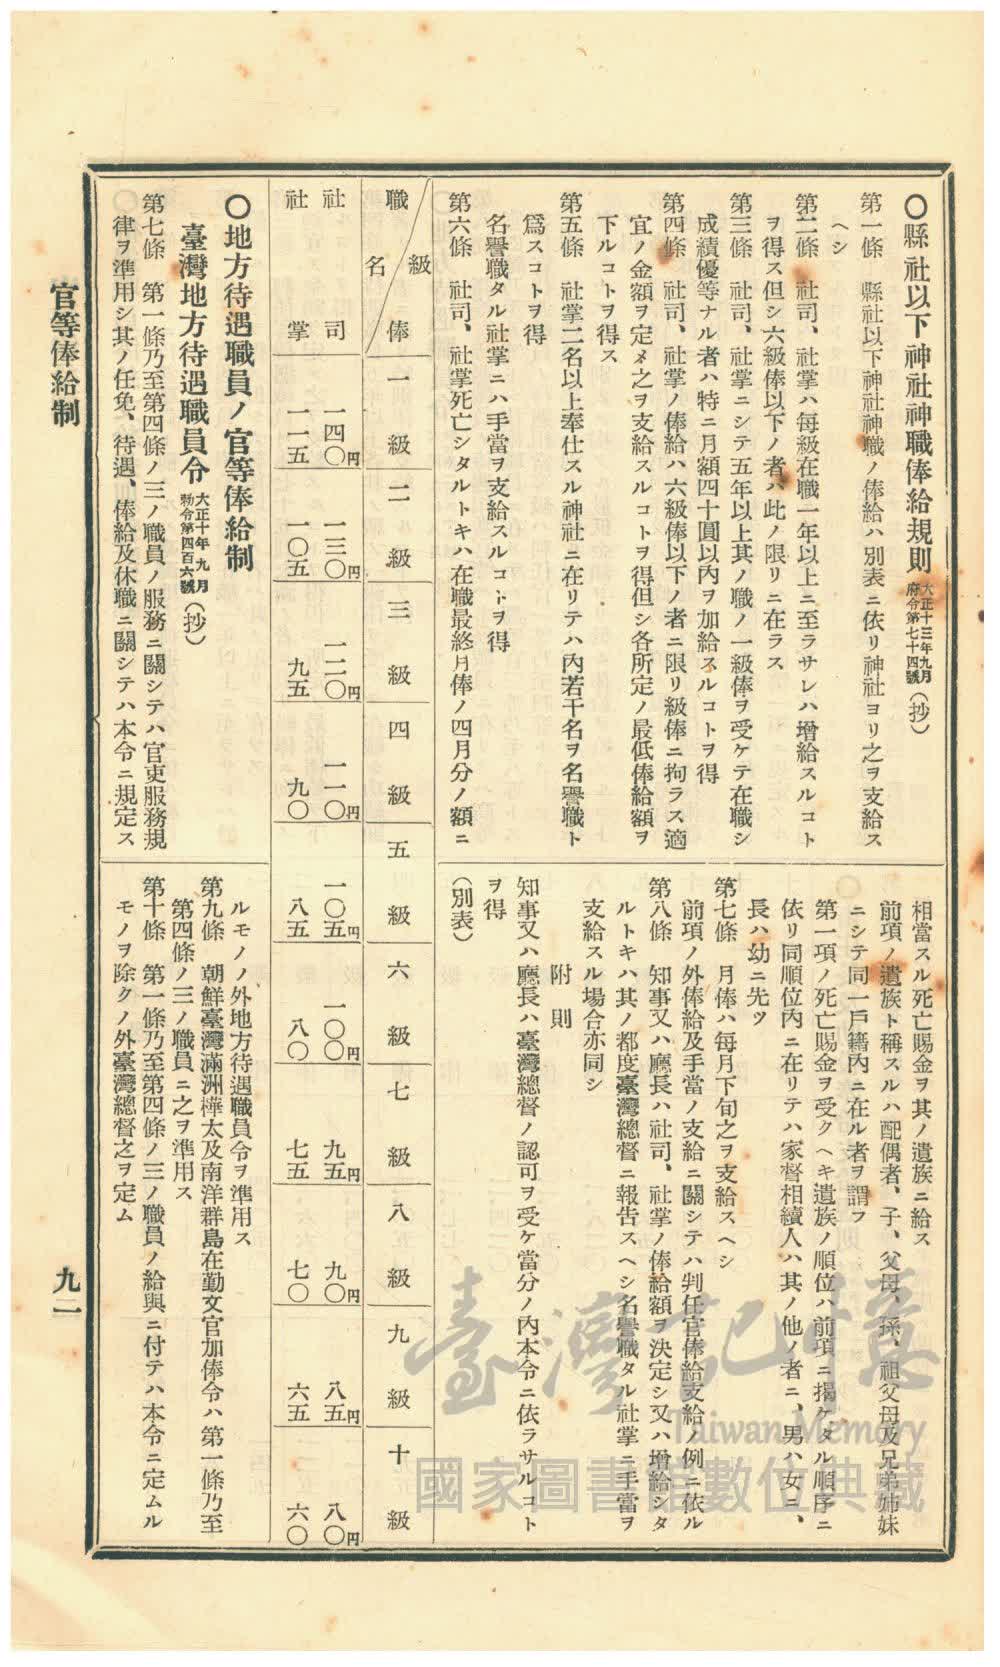 〇縣社以下神社神職俸給規則 大正十三年九月府令第七十四號(抄)
第一條 縣社以下神社神職ノ俸給ハ別表ニ依リ神社ヨリ之ヲ支給ス
ヘシ
第二條 社司、社掌ハ每級在職一年以上ニ至ラサレハ增給スルコト
ヲ得ス但シ六級俸以下ノ者ハ此ノ限リニ在ラス
第三條 社司、社掌ニシテ五年以上其ノ職ノ一級俸ヲ受ケテ在職シ
成績優等ナル者ハ特ニ月額四十圓以內ヲ加給スルコトヲ得
第四條 社司、社掌ノ俸給ハ六級俸以下ノ者ニ限リ級俸ニ拘ラス適
宜ノ金額ヲ定メ之ヲ支給スルコトヲ得但シ各所定ノ最低俸給額ヲ
下ルコトヲ得ス
第五條 社掌二名以上奉仕スル神社ニ在リテハ內若干名ヲ名譽職ト
爲スコトヲ得
名譽職タル社掌ニハ手當ヲ支給スルコトヲ得
第六條 社司、社掌死亡シタルトキハ在職最終月俸ノ四月分ノ額ニ
相當スル死亡賜金ヲ其ノ遺族ニ給ス
前項ノ遺族ト稱スルハ配偶者、子、父母、孫、祖父母及兄弟姉妹
ニシテ同一戶籍內ニ在ル者ヲ謂フ
第一項ノ死亡賜金ヲ受クヘキ遺族ノ順位ハ前項ニ揭ケタル順序ニ
依リ同順位內ニ在リテハ家督相續人ハ其ノ他ノ者ニ、男ハ女ニ、
長ハ幼ニ先ツ
第七條 月俸ハ每月下旬之ヲ支給スヘシ
前項ノ外俸給及手當ノ支給ニ關シテハ判任官俸給支給ノ例ニ依ル
第八條 知事又ハ廳長ハ社司、社掌ノ俸給額ヲ決定シ又ハ增給シタ
ルトキハ其ノ都度臺灣總督ニ報告スヘシ名譽職タル社掌ニ手當ヲ
支給スル場合亦同シ
附則
知事又ハ廳長ハ臺灣總督ノ認可ヲ受ケ當分ノ內本令ニ依ラサルコト
ヲ得
(別表)
職名 級俸 一級 二級 三級 四級 五級 六級 七級 八級 九級 十級
社司 一四〇円 一三〇円 一二〇円 一一〇円 一〇五円 一〇〇円 九五円 九〇円 八五円 八〇円
社掌 一一五 一〇五 九五 九〇 八五 八〇 七五 七〇 六五 六〇
〇地方待遇職員ノ官等俸給制
臺灣地方待遇職員令 大正十年九月勅令第四百六號(抄)
第七條 第一條乃至第四條ノ三ノ職員ノ服務ニ關シテハ官吏服務規
律ヲ準用シ其ノ任免、待遇、俸給及休職ニ關シテハ本令ニ規定ス
ルモノノ外地方待遇職員令ヲ準用ス
第九條 朝鮮臺灣滿洲樺太及南洋群島在勤文官加俸令ハ第一條乃至
第四條ノ三ノ職員ニ之ヲ準用ス
第十條 第一條乃至第四條ノ三ノ職員ノ給與ニ付テハ本令ニ定ムル
モノヲ除クノ外臺灣總督之ヲ定ム
官等俸給制
九二
臺灣記憶
Taiwan Memory
國家圖書館數位典藏